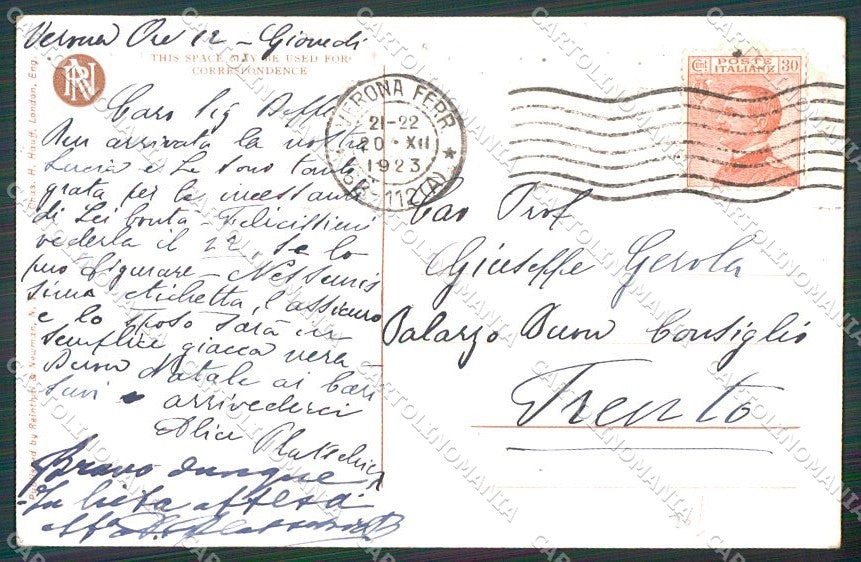 Verona Ore 12 - Giovedì
THIS SPACE MAY BE USED FOR
CORRESPONDENCE
RN
Caro Sig
Ben arrivata la nostra
Lucia e Le sono tanto
grata per la incessante
di Lei bontà - Felicissimi
vederla il 22, se lo
può figurare - Nessunis
sima etichetta, l'assicuro
e lo sposo sarà in
semplice giacca nera
Buon Natale ai Cari
Suoi e arrivederci
Alice
Bravo dunque
In lieta attesa
aff
VERONA FERR.
21-22
20 · XII
1923
112 (A)
POSTE
ITALIANE
Cent 30
Caro Prof
Giuseppe Gerola
Palazzo Buon Consiglio
Trento
Published by Reinthal & Newman, N.
Chas. H. Hauff, London, Eng.
CARTOLINOMANIA